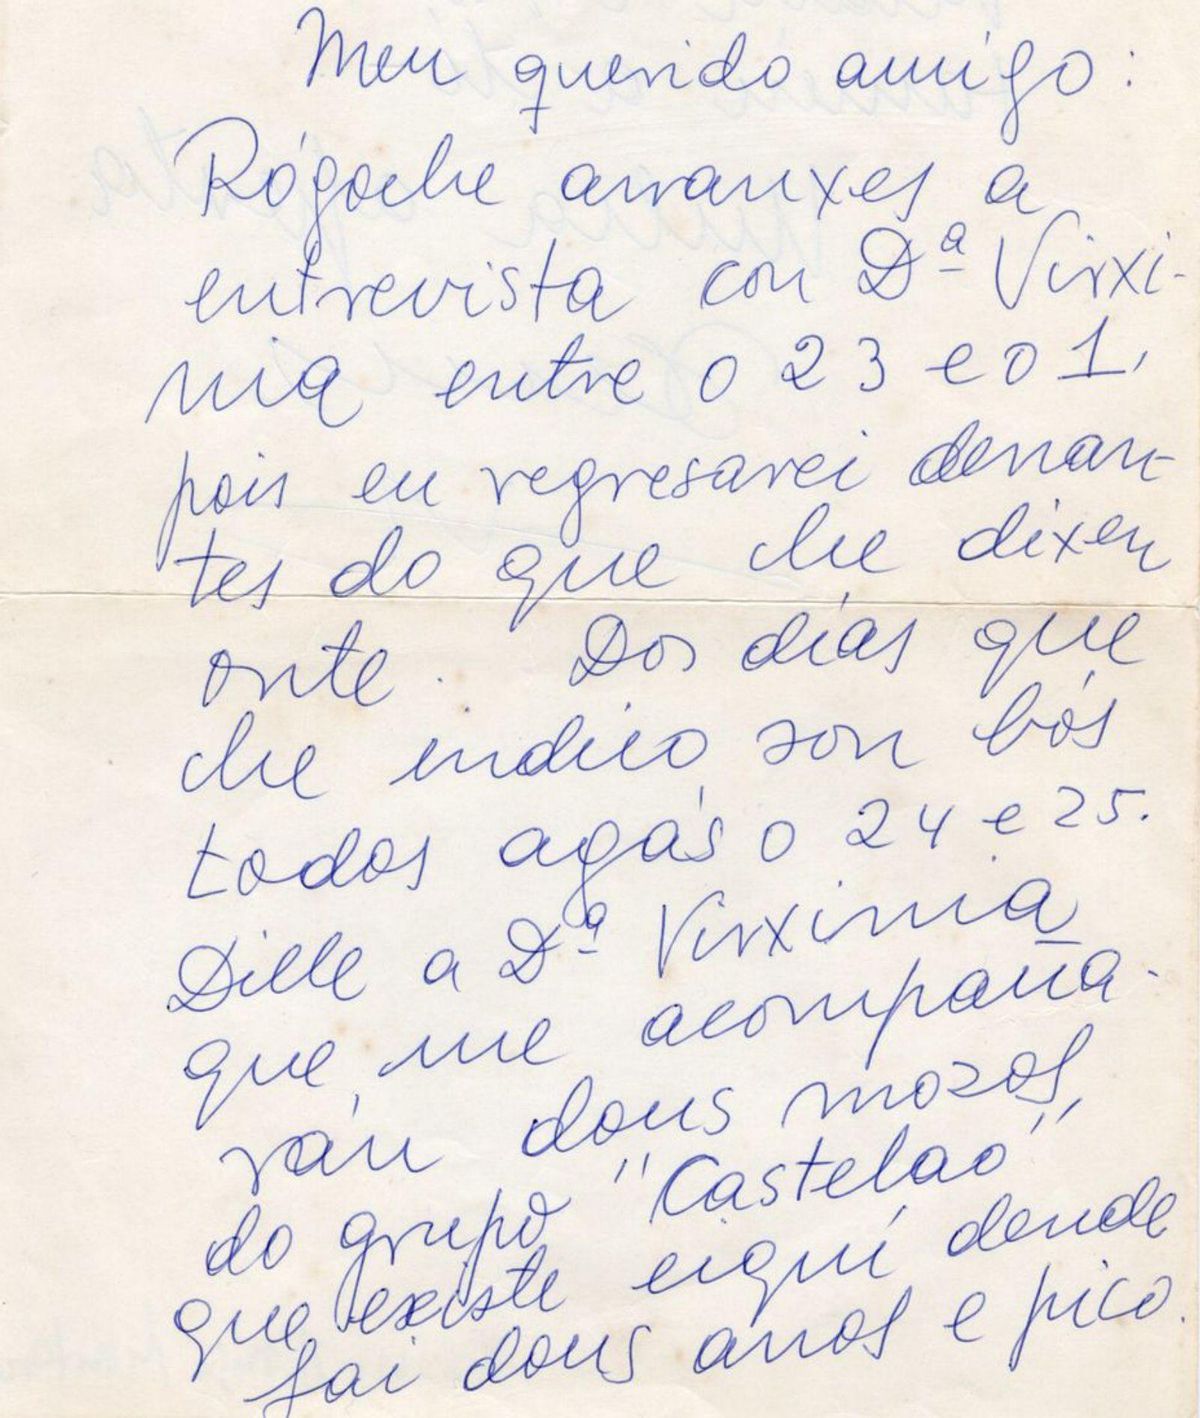 Meu querido amigo:
Rógoche arranxes a
entrevista con Dª Virxi-
nia entre o 23 e o 1,
pois eu regresarei denan-
tes do que che dixen
onte. Dos días que
che indico son bós
todos agás o 24 e 25.
Dille a Dª Virxinia
que me acompaña-
rán dous mozos,
do grupo "Castelao"
que existe eiquí dende
fai dous anos e pico.